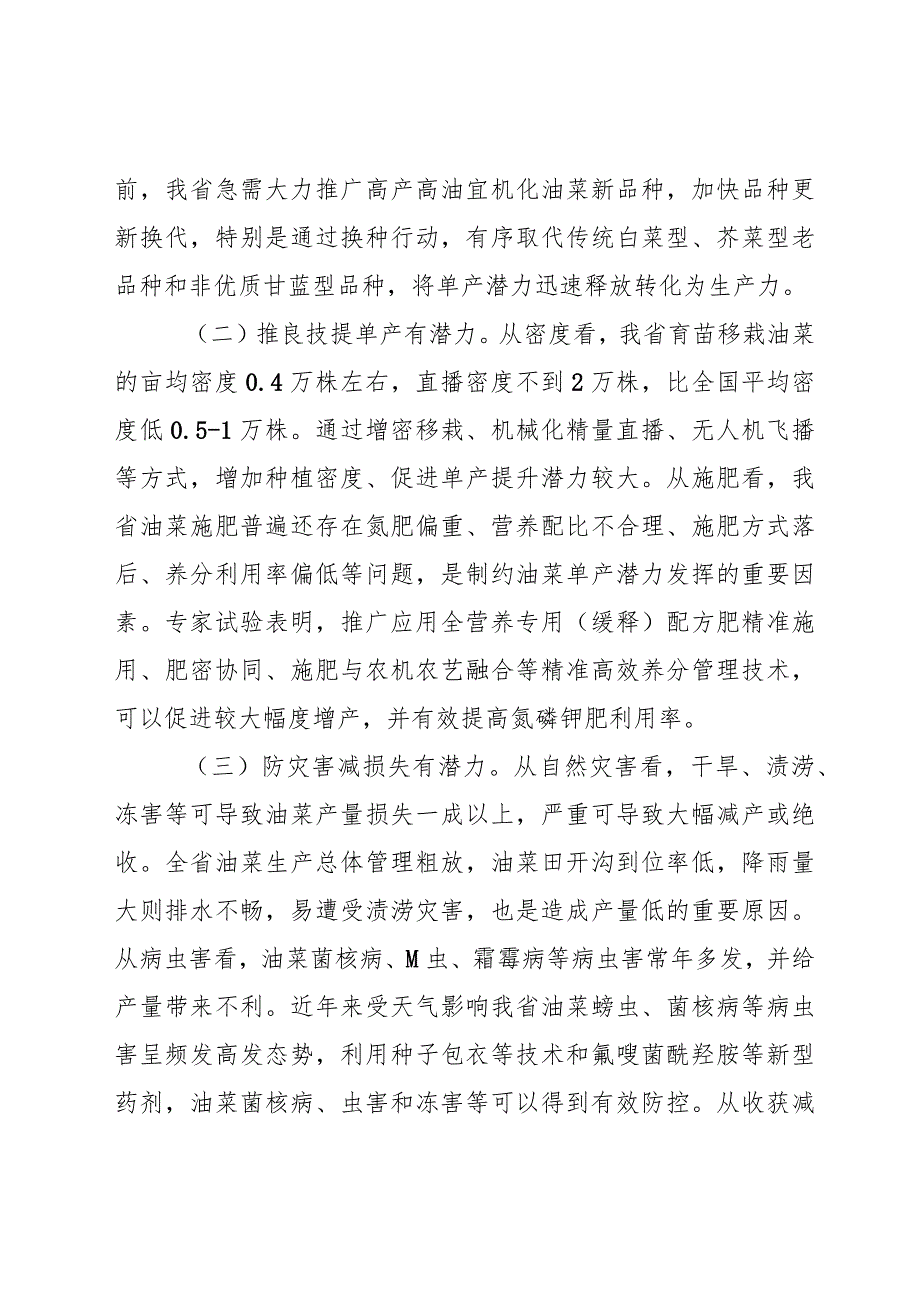 前，我省急需大力推广高产高油宜机化油菜新品种，加快品种更
新换代，特别是通过换种行动，有序取代传统白菜型、芥菜型老
品种和非优质甘蓝型品种，将单产潜力迅速释放转化为生产力。
（二）推良技提单产有潜力。从密度看，我省育苗移栽油菜
的亩均密度 0.4 万株左右，直播密度不到 2 万株，比全国平均密
度低 0.5-1 万株。通过增密移栽、机械化精量直播、无人机飞播
等方式，增加种植密度、促进单产提升潜力较大。从施肥看，我
省油菜施肥普遍还存在氮肥偏重、营养配比不合理、施肥方式落
后、养分利用率偏低等问题，是制约油菜单产潜力发挥的重要因
素。专家试验表明，推广应用全营养专用（缓释）配方肥精准施
用、肥密协同、施肥与农机农艺融合等精准高效养分管理技术，
可以促进较大幅度增产，并有效提高氮磷钾肥利用率。
（三）防灾害减损失有潜力。从自然灾害看，干旱、渍涝、
冻害等可导致油菜产量损失一成以上，严重可导致大幅减产或绝
收。全省油菜生产总体管理粗放，油菜田开沟到位率低，降雨量
大则排水不畅，易遭受渍涝灾害，也是造成产量低的重要原因。
从病虫害看，油菜菌核病、M 虫、霜霉病等病虫害常年多发，并给
产量带来不利。近年来受天气影响我省油菜螃虫、菌核病等病虫
害呈频发高发态势，利用种子包衣等技术和氟嗖菌酰羟胺等新型
药剂，油菜菌核病、虫害和冻害等可以得到有效防控。从收获减